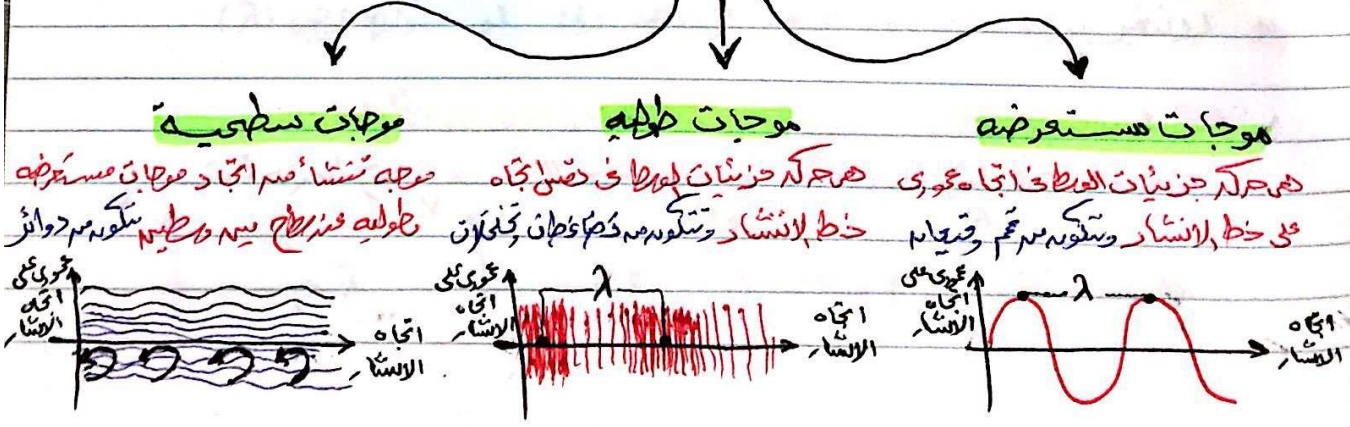 موجات مستعرضه
هى حركة جزيئات الوسط فى اتجاه عمودى
على خط الانتشار وتتكون من قمم وقيعان
عمودى على
اتجاه
الانتشار
λ
اتجاه
الانتشار
موجات طوليه
هى حركة جزيئات الوسط فى نفس اتجاه
خط الانتشار وتتكون من تضاغطات وتخلخلات
عمودى على
اتجاه
الانتشار
λ
اتجاه
الانتشار
موجات سطحية
موجه تنشأ من اتحاد موجات مستعرضه
طوليه عند سطح بين وسطين تتكون من دوائر
عمودى على
اتجاه
الانتشار
اتجاه
الانتشار